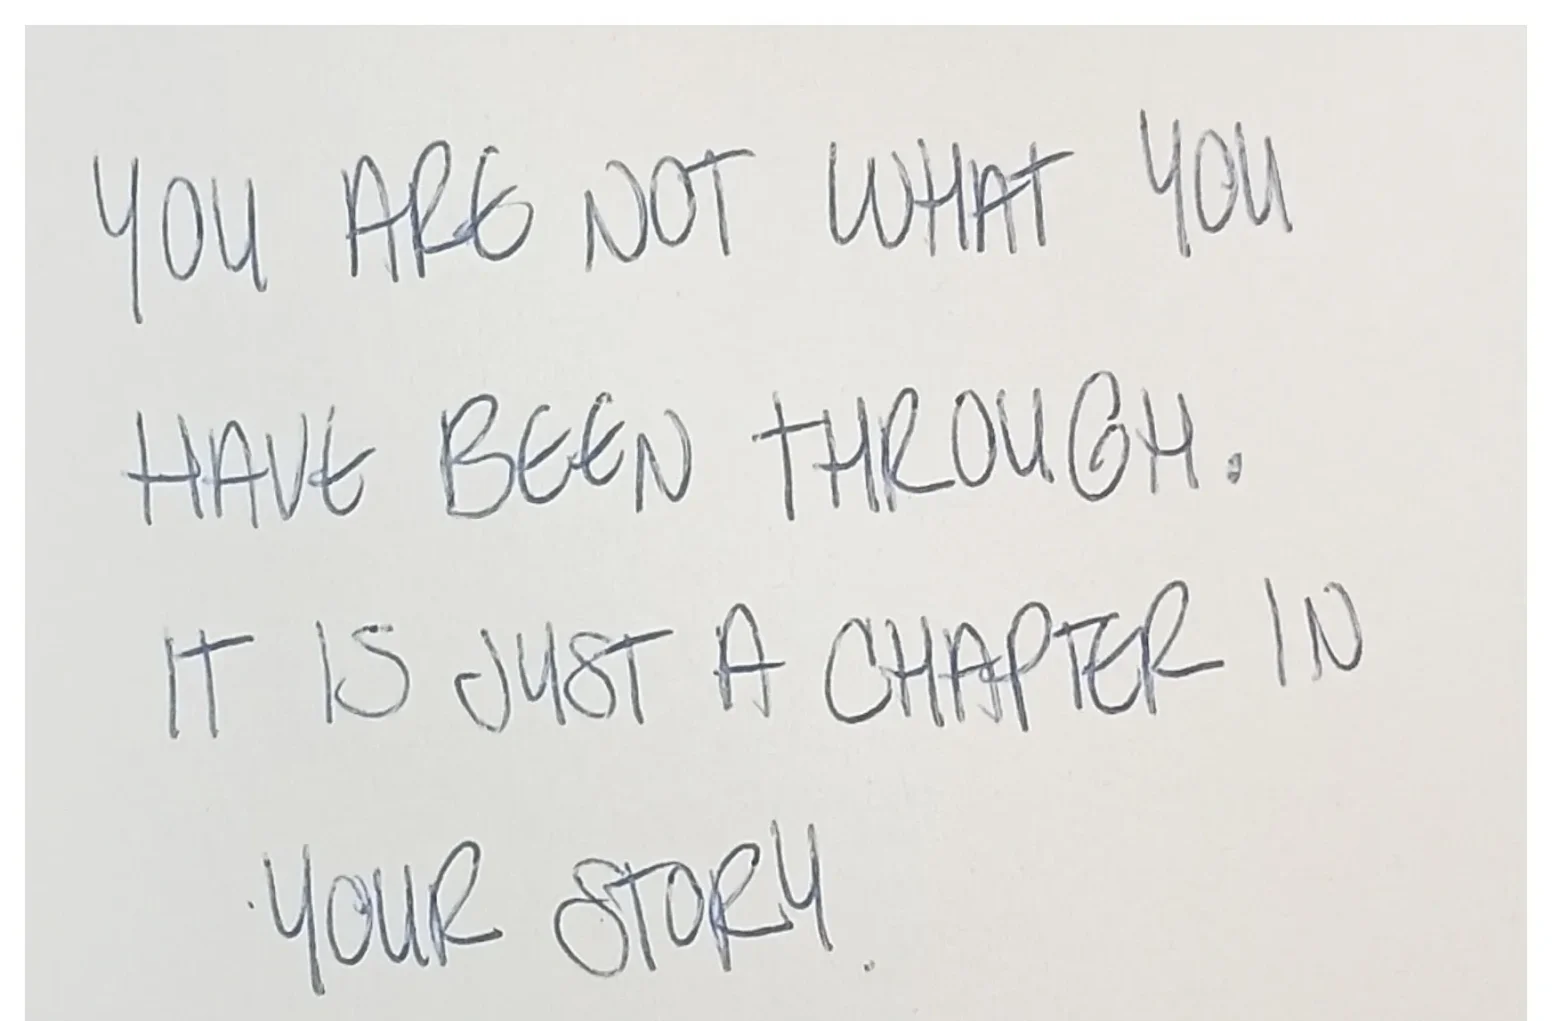 YOU ARE NOT WHAT YOU
HAVE BEEN THROUGH.
IT IS JUST A CHAPTER IN
YOUR STORY.